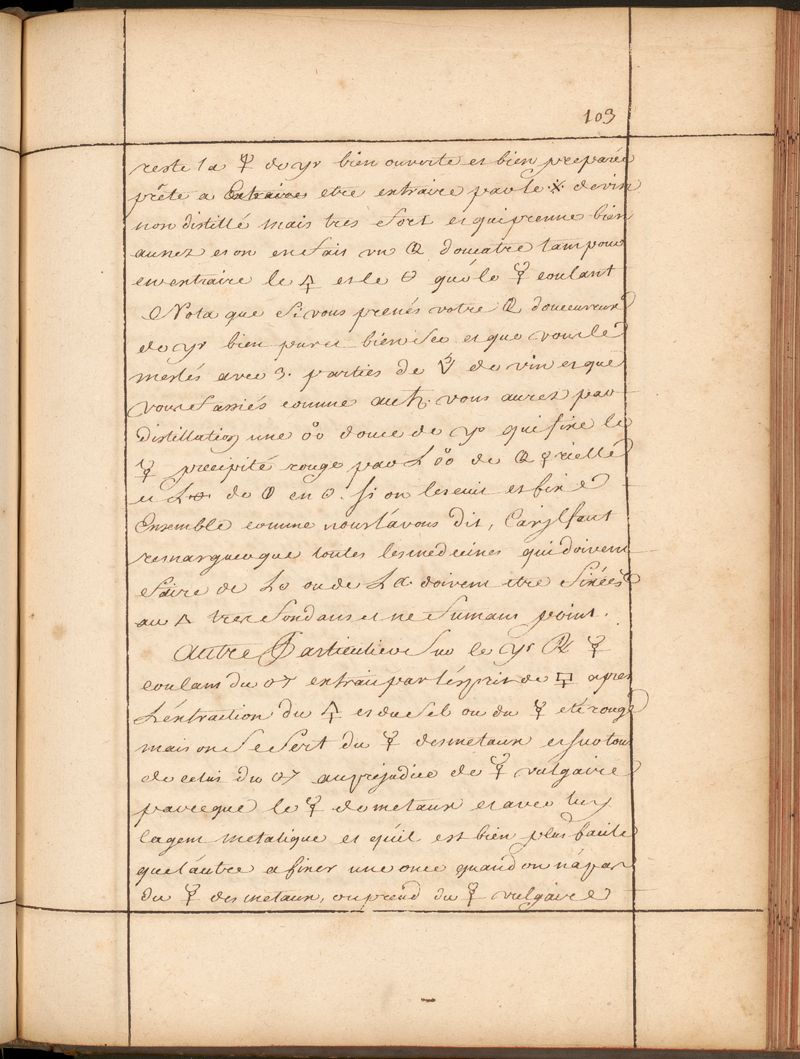 103
reste la ☿ de yr bien ouverte et bien preparée
prête a Extraire etre extraire par le ⁜ de vin
non distillé mais tres fort et qui prenne bien
au nez et on en fait un douceatre tam pour
en extraire le 🜍 et le ⊖ que le ☿ coulant
Nota que si vous prenés votre doucereux
de yr bien pur et bien sec et que vous le
meslés avec 3. parties de de vin et que
vous fassiés comme au ♄. vous aurez par
distillation une douce de yr qui fixe le
☿ precipité rouge par L de
et L de en ⊖. si on les cuit et fixe
Ensemble comme nous l'avons dit, Car jl faut
remarquer que toutes les medecines qui doivent
faire de L ou de L doivent etre fixées
au 🜂 tres fondans et ne fumans point.
Autre Particulier sur le yr ☿
coulant du extrait par l'ésprit de apres
L'éxtraction du 🜍 et du sel ou du ☿ eté rouge
mais on se sert du ☿ des metaux et sur tout
de celui du au préjudice de ☿ vulgaire
parceque le ☿ de metaux et avec luy
lagent metalique et qu'il est bien plus facile
que l'áutre a fixer une once quand on n'a pas
du ☿ des metaux, on prend du ☿ vulgaire